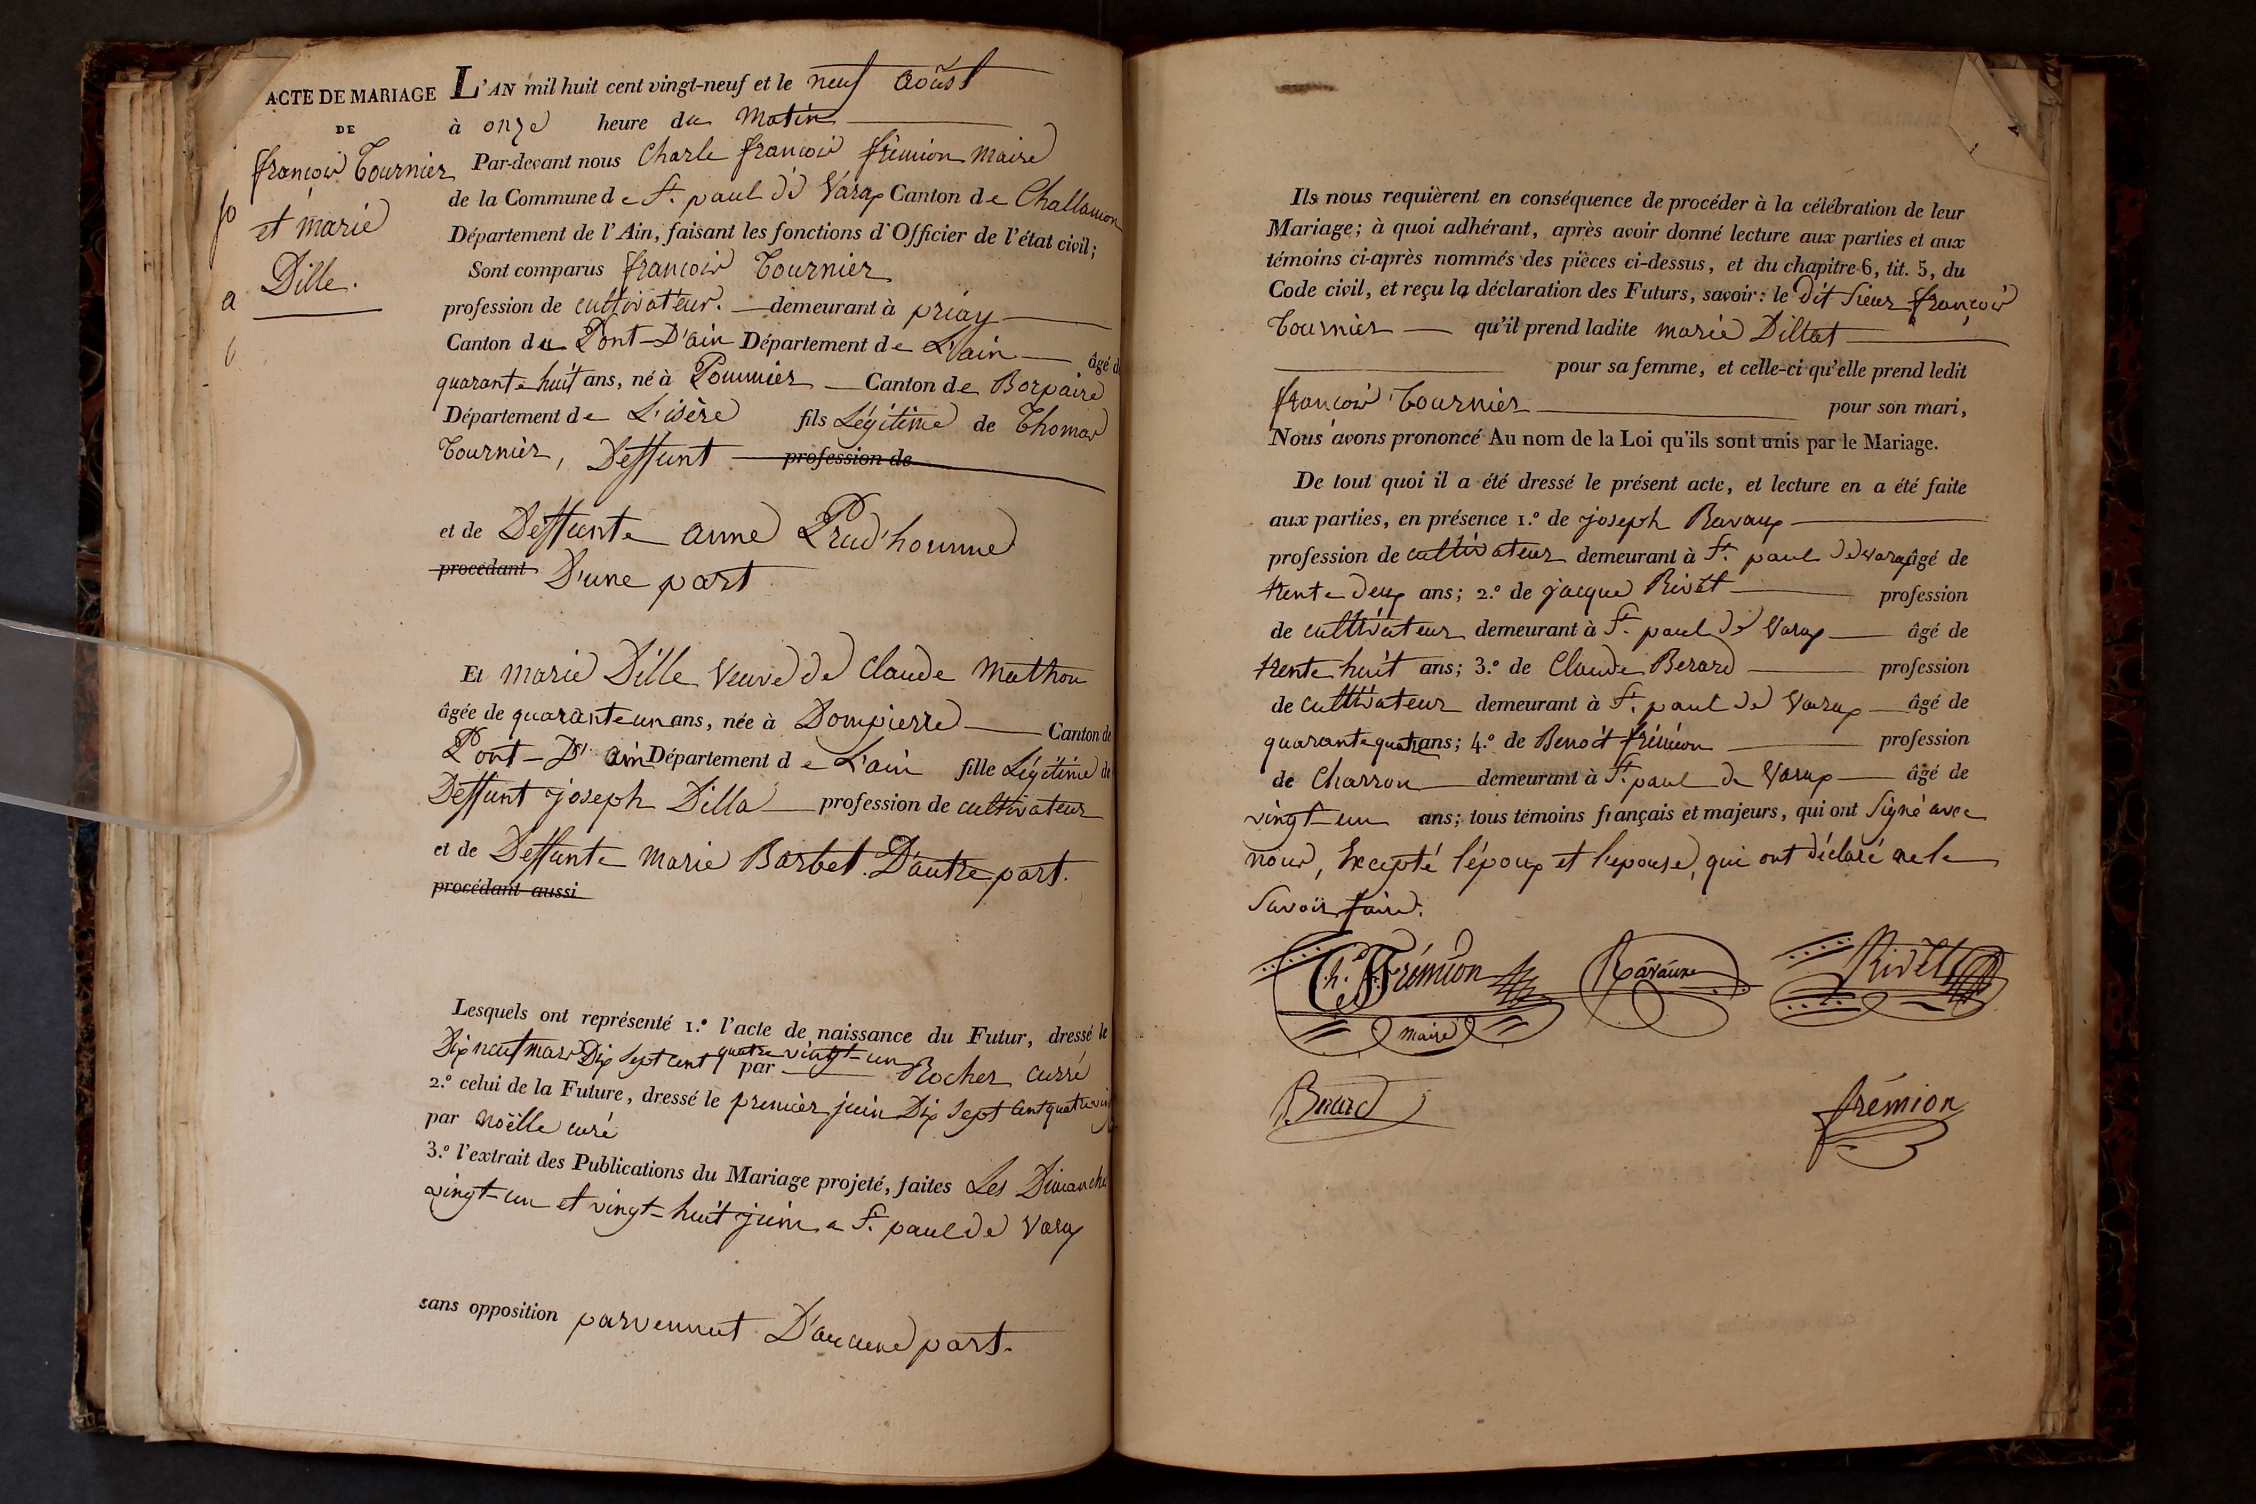 ACTE DE MARIAGE
DE
françois Tournier
et marie
Dille.
L'AN mil huit cent vingt-neuf et le neuf août
à onze heure du matin
Par-devant nous Charle françois frémion maire
de la Commune de St. paul de Varax Canton de Challamon
Département de l'Ain, faisant les fonctions d'Officier de l'état civil;
Sont comparus françois Tournier
profession de cultivateur. demeurant à priay
Canton du Pont-D'ain Département de L'ain âgé de
quarante huit ans, né à Pommier Canton de Borpaire
Département de L'isère fils Légitime de Thomas
Tournier, Deffunt profession de
et de Deffunte anne Prud'homme
procédant D'une part
Et marie Dille veuve de Claude Mathon
âgée de quarante un ans, née à Dompierre Canton de
Pont-D'ain Département de L'ain fille Légitime de
Deffunt joseph Dilla profession de cultivateur
et de Deffunte marie Barbet. D'autre part.
procédant aussi
Lesquels ont représenté 1.º l'acte de naissance du Futur, dressé le
Dix neuf mars Dix sept cent quatre vingt-un
par Rocher curré
2.º celui de la Future, dressé le premier juin Dix sept cent quatre vingt
par noëlle curé
3.º l'extrait des Publications du Mariage projeté, faites Les Dimanche
vingt-un et vingt-huit juin a St. paul de Varax
sans opposition parvennut D'aucune part.
Ils nous requièrent en conséquence de procéder à la célébration de leur
Mariage; à quoi adhérant, après avoir donné lecture aux parties et aux
témoins ci-après nommés des pièces ci-dessus, et du chapitre 6, tit. 5, du
Code civil, et reçu la déclaration des Futurs, savoir: le dit sieur françois
Tournier qu'il prend ladite marie Dillat
pour sa femme, et celle-ci qu'elle prend ledit
françois Tournier pour son mari,
Nous avons prononcé Au nom de la Loi qu'ils sont unis par le Mariage.
De tout quoi il a été dressé le présent acte, et lecture en a été faite
aux parties, en présence 1.º de joseph Ravaux
profession de cultivateur demeurant à St. paul de varax âgé de
trente deux ans; 2.º de jacque Rivèt profession
de cultivateur demeurant à St. paul de Varax âgé de
trente huit ans; 3.º de Claude Berard profession
de cultivateur demeurant à St. paul de Varax âgé de
quarante quatre ans; 4.º de Benoit frémion profession
de Charron demeurant à St. paul de Varax âgé de
vingt-un ans; tous témoins français et majeurs, qui ont signé avec
nous, Excepté l'époux et l'epouse, qui ont déclaré ne le
savoir faire.
Ch. F. Frémion Ravaux Rivèt
maire
Berard frémion